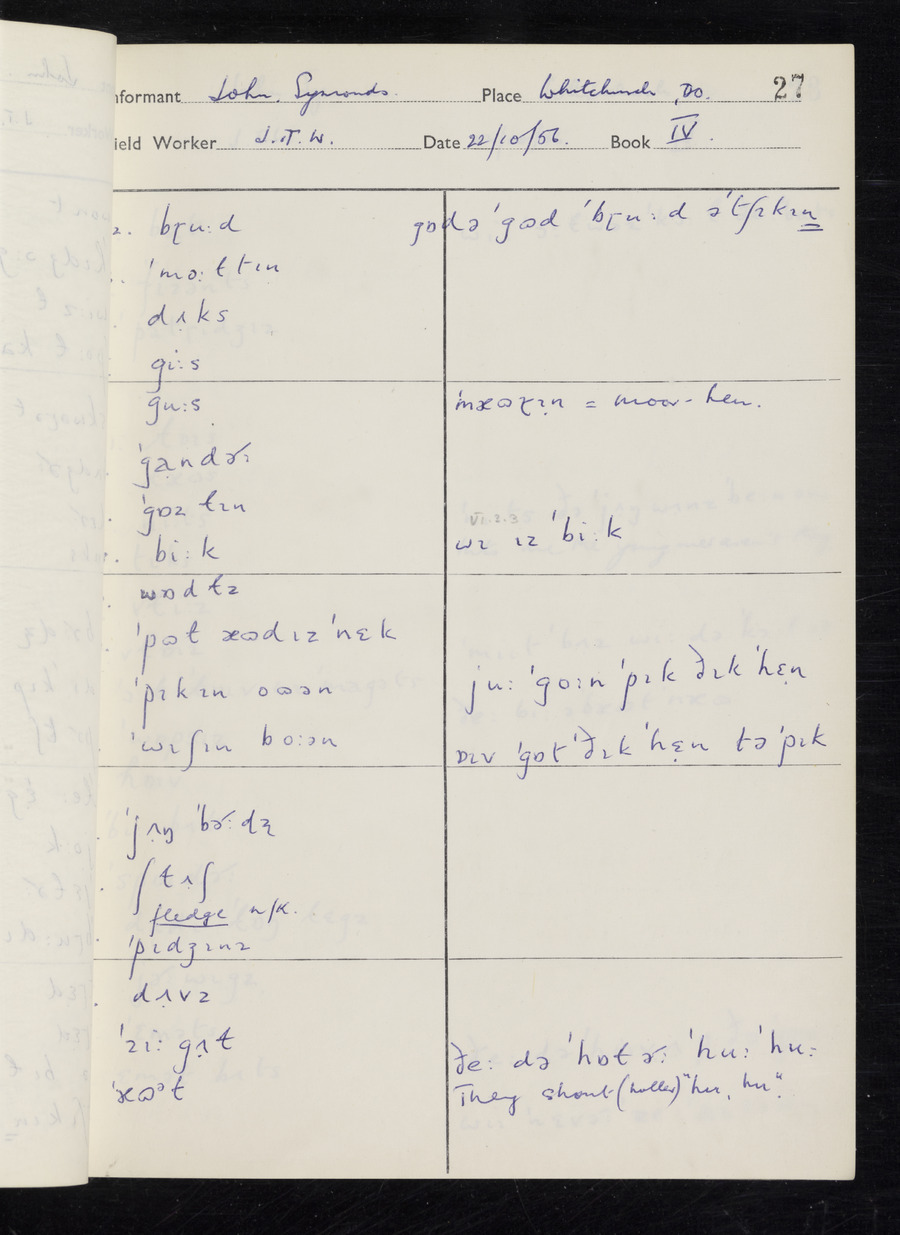 nformant John. Symonds. Place Whitchurch, Do. 27
ield Worker J.T.W. Date 22/10/56. Book IV.
bɽu:d gɒdə 'gɷd 'bɽu:d ə'tʃɪkɪn
'mɔ:ttɪn
dʌks
gi:s
gu:s 'mæɷɽɪn = moor-hen.
'gandɚ:
'gɒz lɪn
VI.2.3
bi:k wɪ ɪz 'bi:k
wɒdlz
'pɷt æɷdɪz 'nɛk
'pɪkɪn oɷən ju: 'go:n 'pɪk ðɪk 'hɛn
'wɪʃɪn bo:ən ɒɪv 'gɒt 'ðɪk 'hɛn tə 'pɪk
'jʌŋ 'bɚ:dz
ʃtʌʃ
fledge n/k.
'pɪdʒɪnz
dʌvz
'zi:gʌl ðe: də 'hɒlɚ: 'hu:'hu:
'æɷət They shout (holler) "hu, hu".